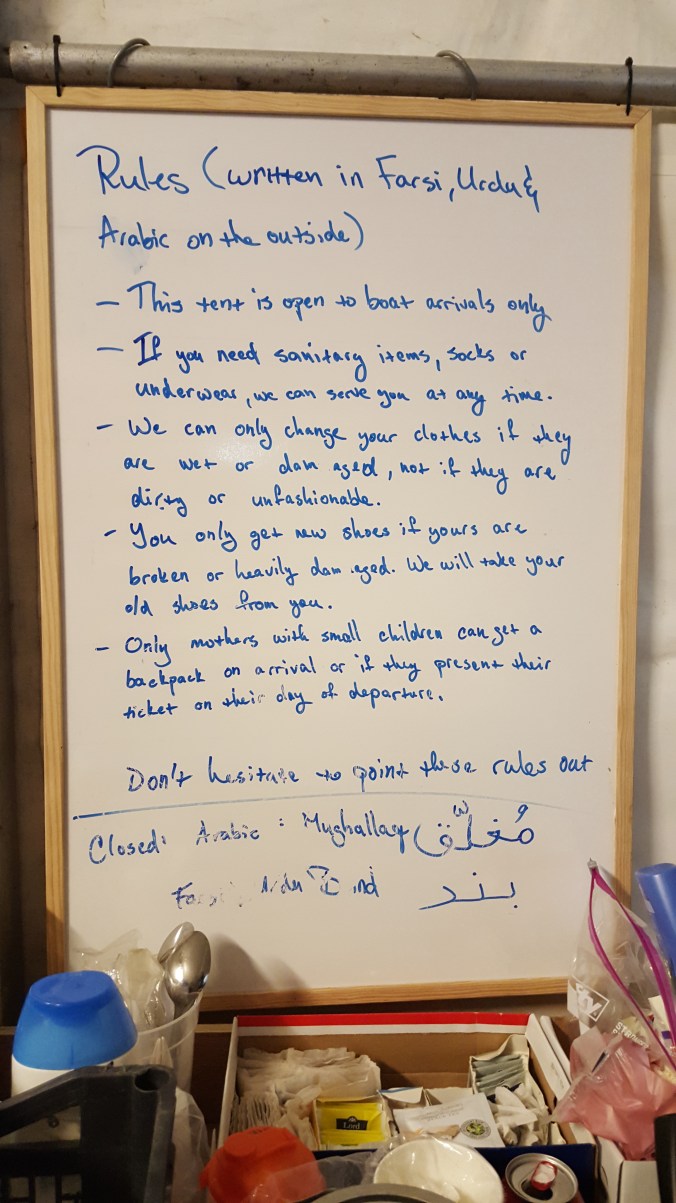 Rules (written in Farsi, Urdu &
Arabic on the outside)
- This tent is open to boat arrivals only
- If you need sanitary items, socks or
underwear, we can serve you at any time.
- We can only change your clothes if they
are wet or damaged, not if they are
dirty or unfashionable.
- You only get new shoes if yours are
broken or heavily damaged. We will take your
old shoes from you.
- Only mothers with small children can get a
backpack on arrival or if they present their
ticket on their day of departure.
Don't hesitate to point these rules out
Closed: Arabic: Mughallaq مُغلّق
بند
Lord